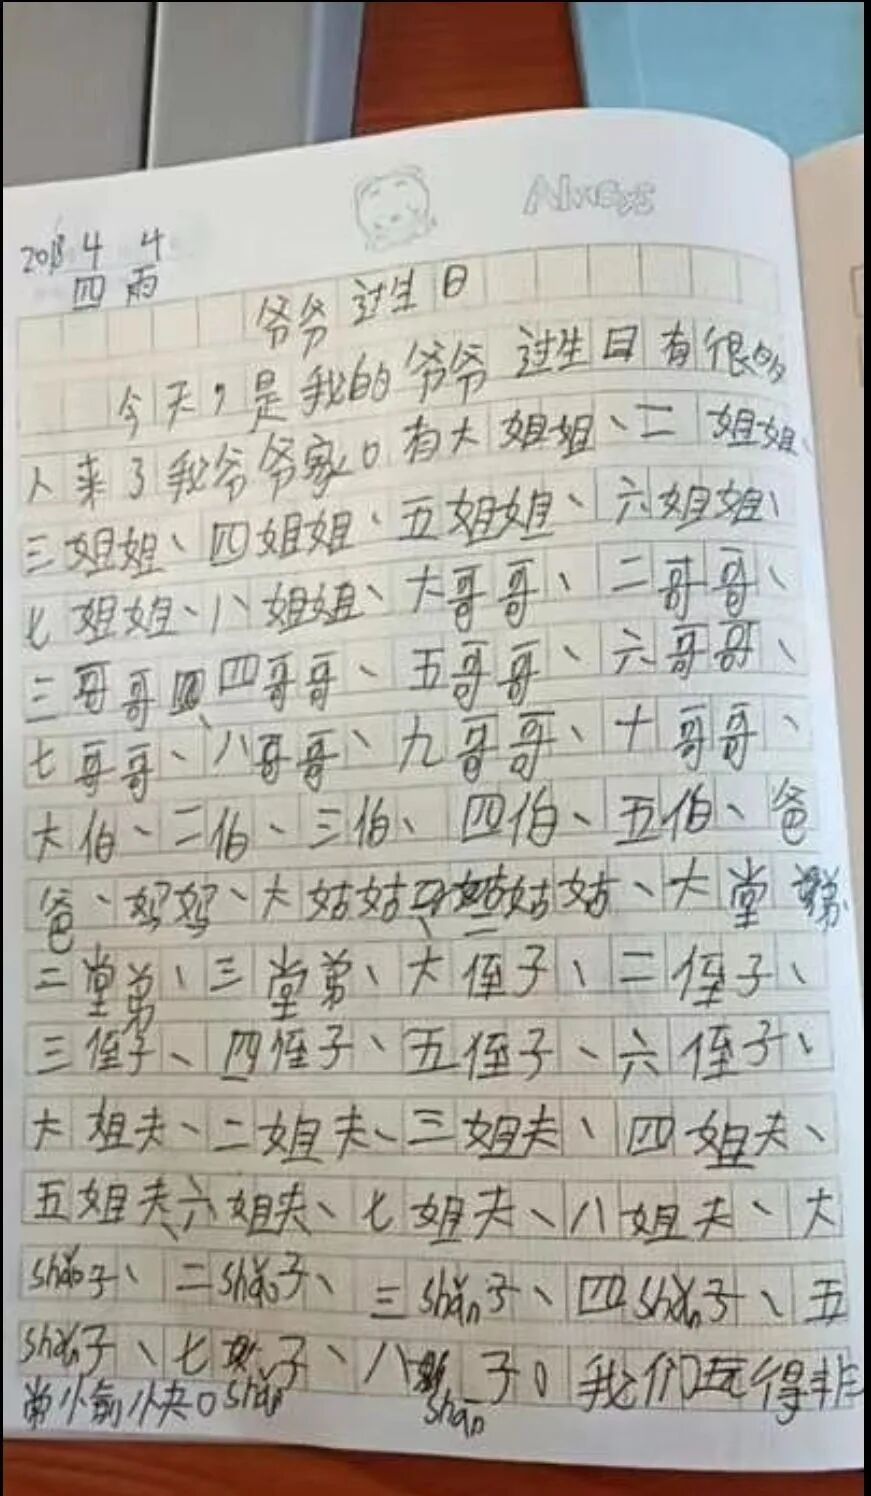 Always
2018 4 4
四 雨
爷爷过生日
今天，是我的爷爷过生日有很多
人来了我爷爷家。有大姐姐、二姐姐、
三姐姐、四姐姐、五姐姐、六姐姐、
七姐姐、八姐姐、大哥哥、二哥哥、
三哥哥、四哥哥、五哥哥、六哥哥、
七哥哥、八哥哥、九哥哥、十哥哥、
大伯、二伯、三伯、四伯、五伯、爸
爸、妈妈、大姑姑、二姑姑、大堂弟、
二堂弟、三堂弟、大侄子、二侄子、
三侄子、四侄子、五侄子、六侄子、
大姐夫、二姐夫、三姐夫、四姐夫、
五姐夫、六姐夫、七姐夫、八姐夫、大
shǎo子、二shǎo子、三shǎn子、四shǎn子、五
shǎn子、七shǎn子、八shǎn子。我们玩得非
常愉快。